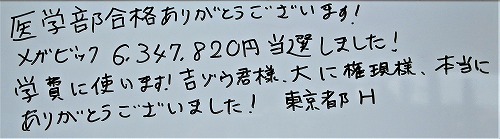 医学部合格ありがとうございます!
メガビック 6,347,820円当選しました!
学費に使います!吉ゾウ君様、大に権現様、本当に
ありがとうございました! 東京都 H